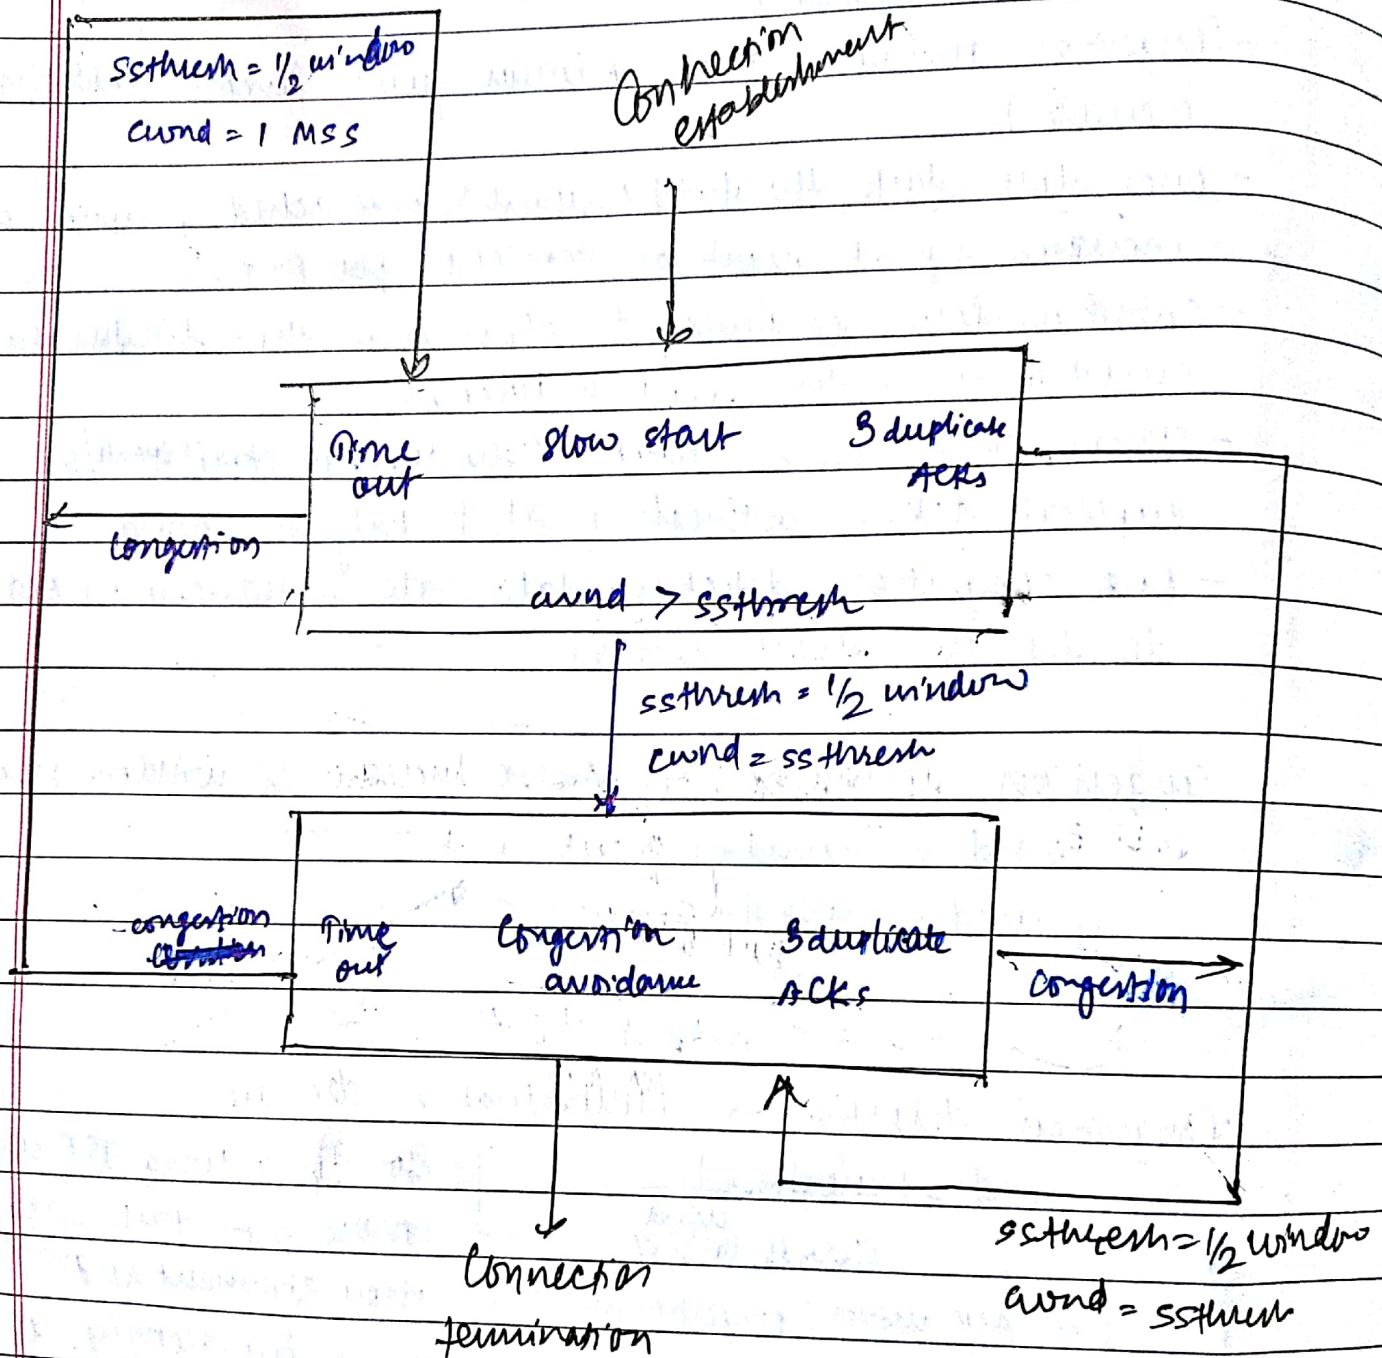 ssthresh = 1/2 window
cwnd = 1 MSS
Connection
establishment
Time
out
Slow start
3 duplicate
ACKs
congestion
cwnd > ssthresh
ssthresh = 1/2 window
cwnd = ssthresh
congestion
Time
out
Congestion
avoidance
3 duplicate
ACKs
congestion
Connection
termination
ssthresh = 1/2 window
cwnd = ssthresh